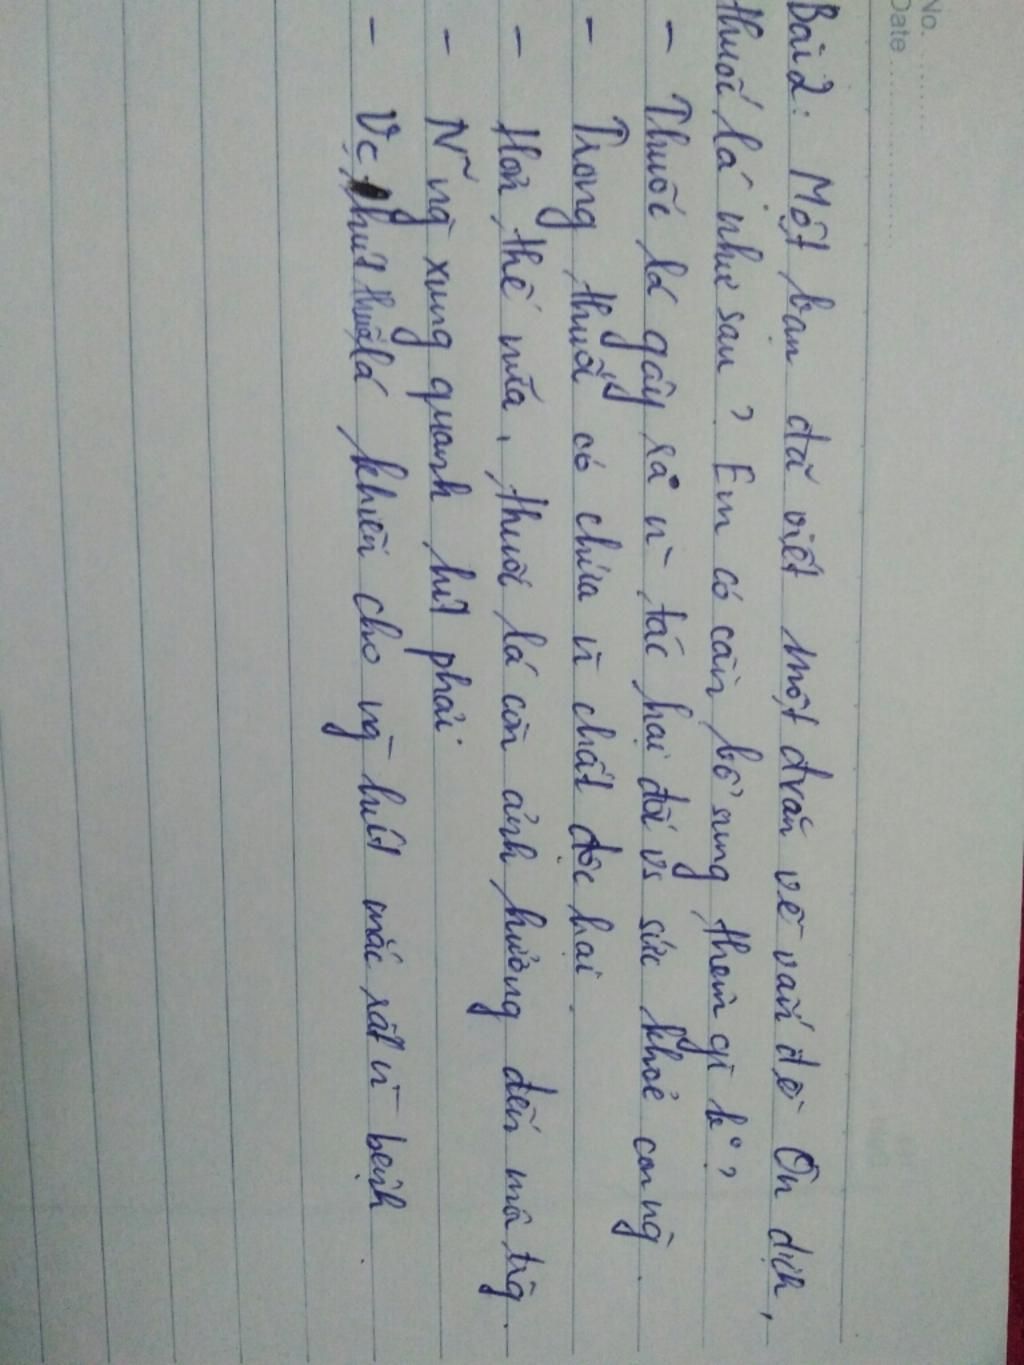 No. ............
Date ........................
Bài 2: Một bạn đã viết một đvăn về vấn đề Ôn dịch,
thuốc lá như sau? Em có cần bổ sung thêm gì k°?
- Thuốc lá gây ra n` tác hại đối vs sức khoẻ con ng`.
- Trong thuốc có chứa n` chất độc hại.
- Hơn thế nữa, thuốc lá còn ảnh hưởng đến môi trg`.
- N~ ng` xung quanh hít phải.
- Vc hút thuốc lá khiến cho ng` hút mắc rất n` bệnh.